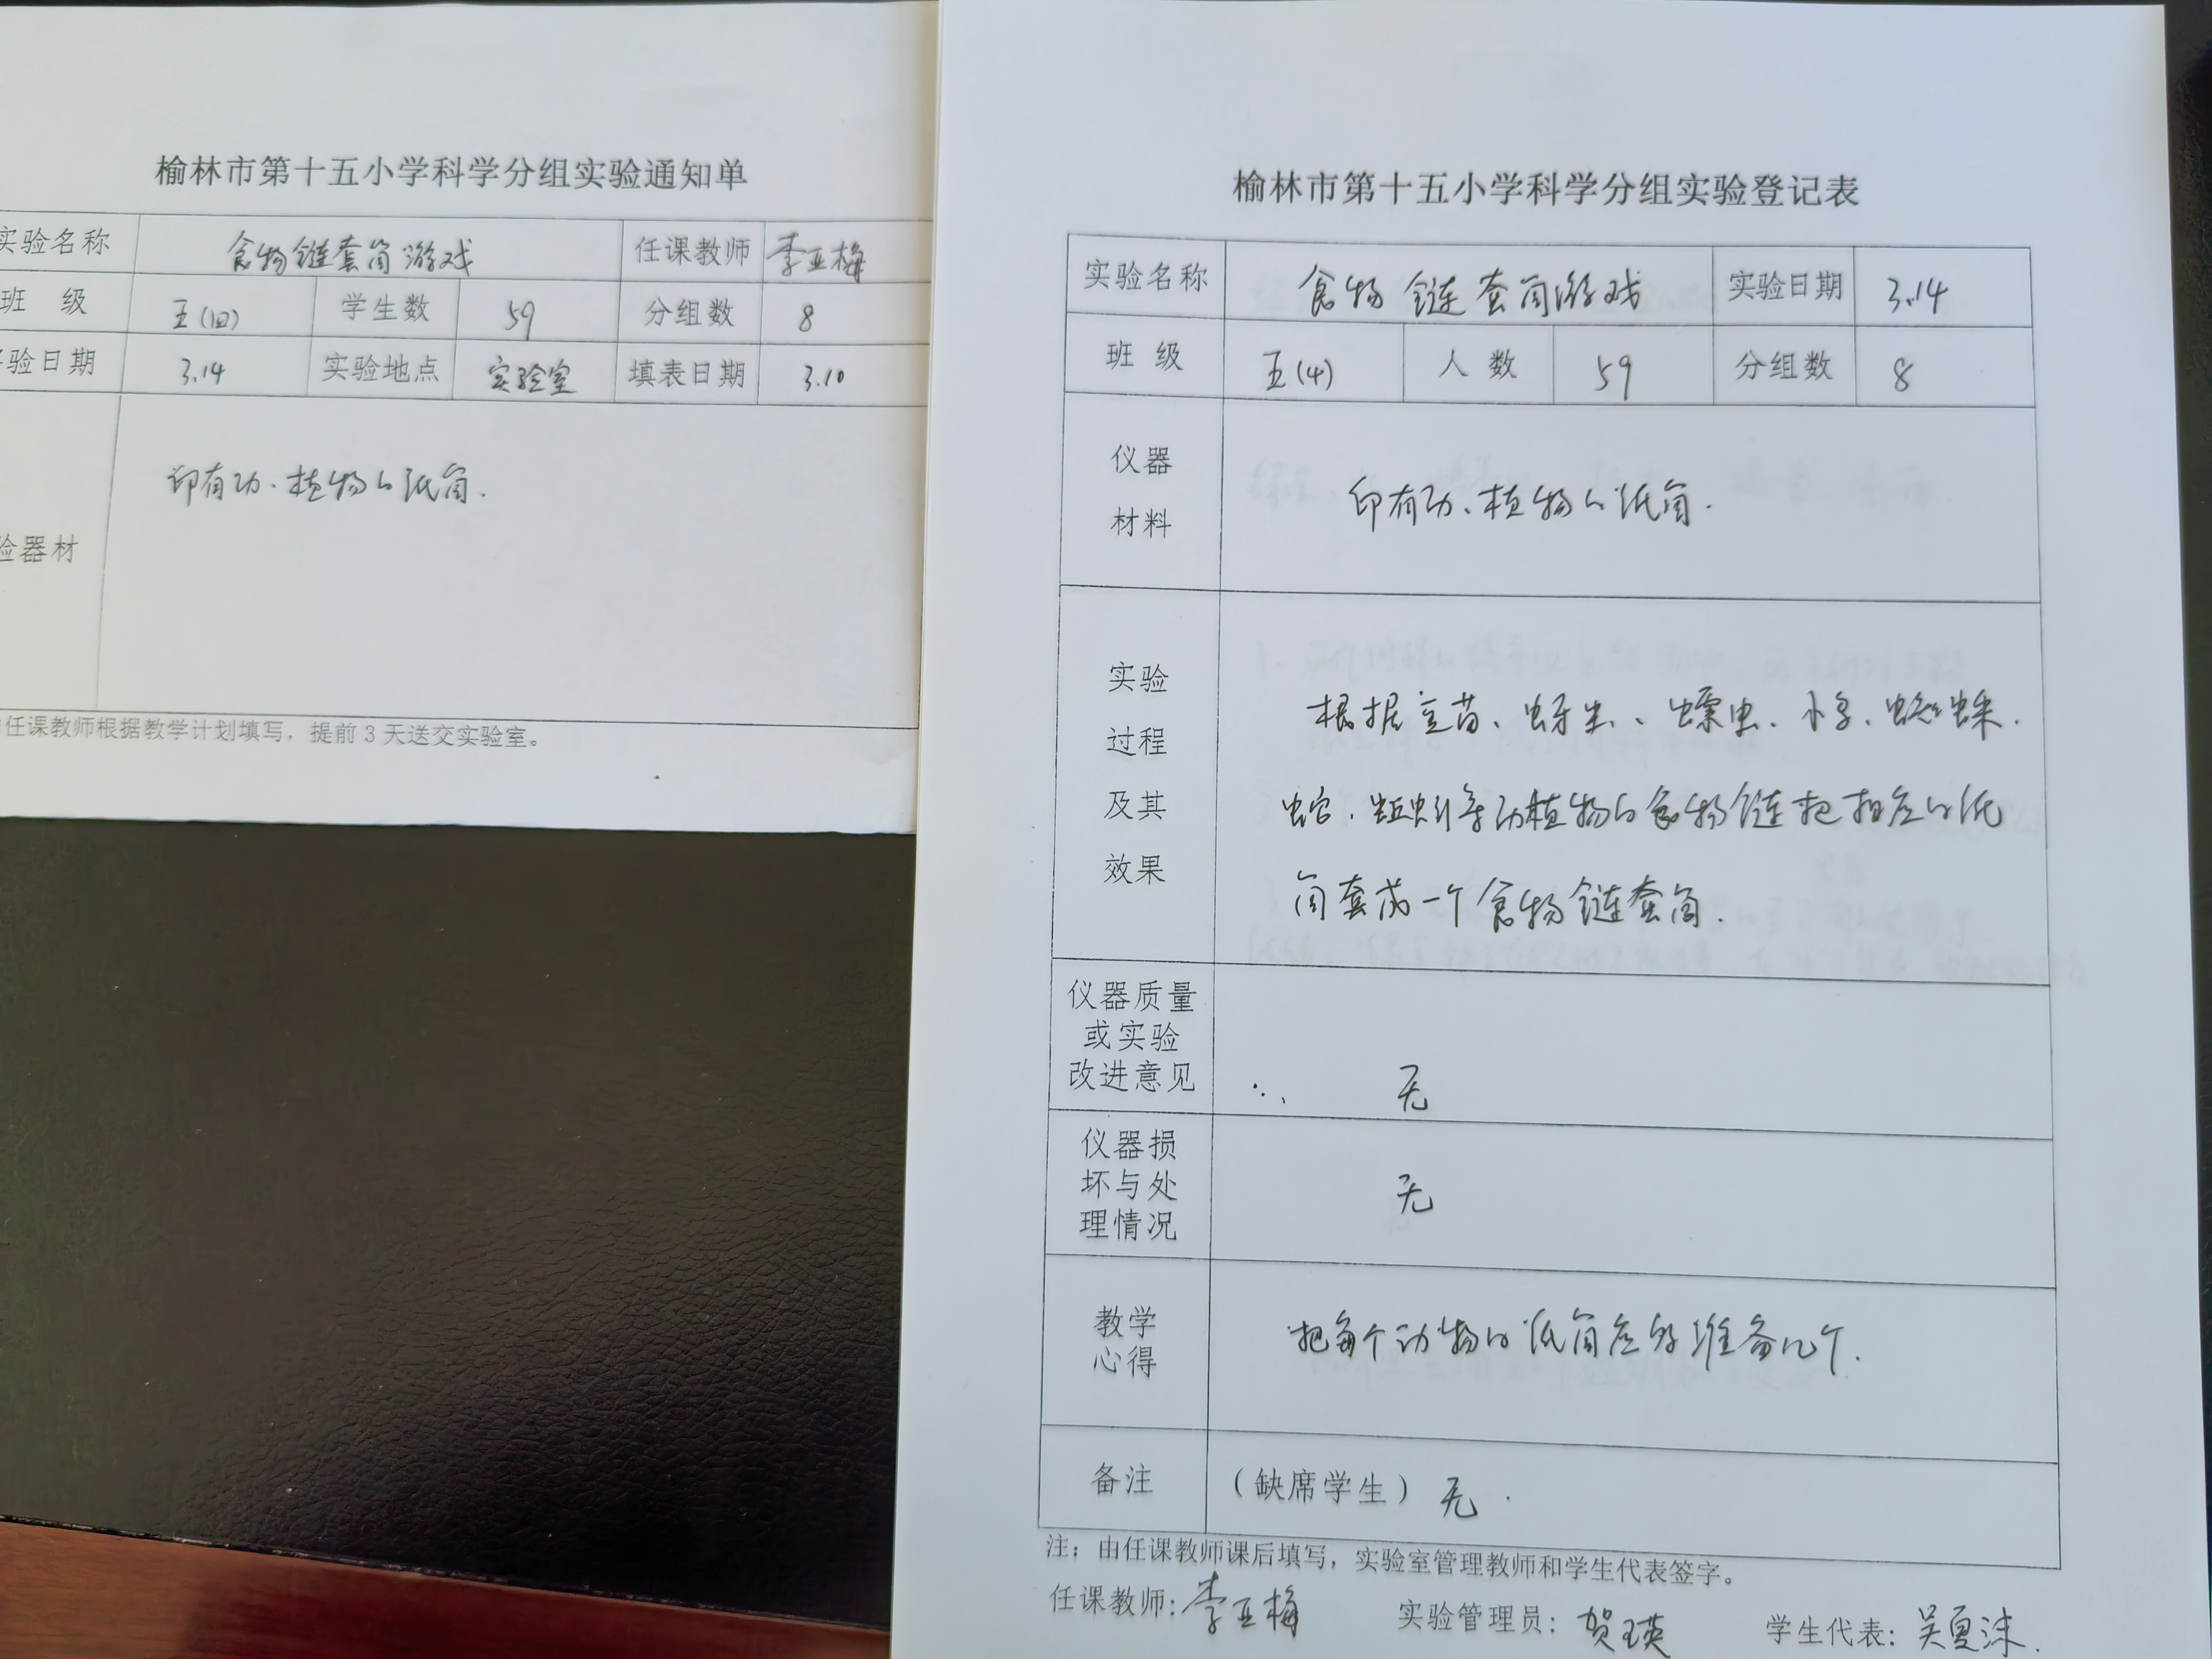 榆林市第十五小学科学分组实验通知单
实验名称 食物链套筒游戏 任课教师 李亚梅
班 级 五(四) 学生数 59 分组数 8
验日期 3.14 实验地点 实验室 填表日期 3.10
验器材 印有动、植物的纸筒.
任课教师根据教学计划填写，提前3天送交实验室。
榆林市第十五小学科学分组实验登记表
实验名称 食物链套筒游戏 实验日期 3.14
班 级 五(4) 人 数 59 分组数 8
仪器
材料
印有动、植物的纸筒.
实验
过程
及其
效果
根据豆苗、蚜虫、瓢虫、小鸟、蜘蛛.
蛇、蚯蚓等动植物的食物链把相应的纸
筒套成一个食物链套筒.
仪器质量
或实验
改进意见
无
仪器损
坏与处
理情况
无
教学
心得
把每个动物的纸筒应多准备几个.
备注 (缺席学生) 无.
注：由任课教师课后填写，实验室管理教师和学生代表签字。
任课教师:李亚梅 实验管理员:贺瑛 学生代表:吴夏沫.